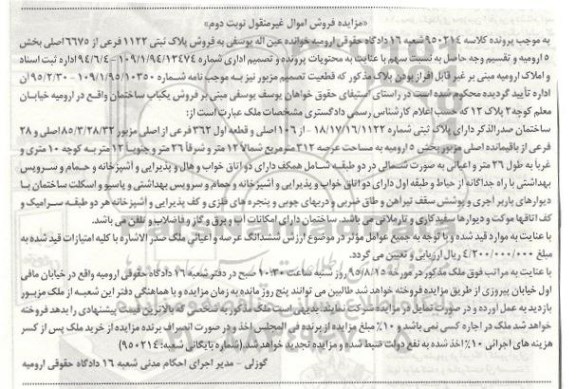 «مزایده فروش اموال غیرمنقول نوبت دوم»
به موجب پرونده کلاسه ۹۵۰۲۱۴ شعبه ۱۶ دادگاه حقوقی ارومیه خوانده عین اله یوسفی به فروش پلاک ثبتی ۱۱۲۲ فرعی از ۶۶۷۵ اصلی بخش
۵ ارومیه و تقسیم وجه حاصل به نسبت سهم با عنایت به محتویات پرونده و تصمیم اداری شماره ۱۰۹/۱/۹۴/۱۳۴۷۴ - ۹۴/۶/۴ اداره ثبت اسناد
و املاک ارومیه مبنی بر غیر قابل افراز بودن پلاک مذکور که قطعیت تصمیم مزبور نیز به موجب نامه شماره ۱۰۹/۱/۹۵/۱۰۳۵۰ - ۹۵/۲/۳۰ آن
اداره تأیید گردیده محکوم شده است در راستای استیفای حقوق خواهان یوسف یوسفی مبنی بر فروش یکباب ساختمان واقع در ارومیه خیابان
معلم کوچه ۲ پلاک ۱۲ که حسب اعلام کارشناس رسمی دادگستری مشخصات ملک عبارت است از:
ساختمان صدرالذکر دارای پلاک ثبتی شماره ۱۸/۱۷/۱۶/۱۱۲۲ - از ۱۰۶ اصلی و قطعه اول ۳۶۲ فرعی از اصلی مزبور ۸۵/۳/۲۸/۳۲ اصلی و ۲۸
فرعی از باقیمانده اصلی مزبور بخش ۵ ارومیه به مساحت عرصه ۳۱۲ مترمربع شمالاً ۱۲ متر و شرقاً ۲۶ متر و جنوباً ۱۲ متر به کوچه ۱۰ متری و
غرباً به طول ۲۶ متر و اعیانی به صورت شمالی در دو طبقه شامل همکف دارای دو اتاق خواب و هال و پذیرایی و آشپزخانه و حمام و سرویس
بهداشتی با راه جداگانه از حیاط و طبقه اول دارای دو اتاق خواب و پذیرایی و آشپزخانه و حمام و سرویس بهداشتی و پاسیو و اسکلت ساختمان با
دیوارهای باربر آجری و پوشش سقف تیرآهن و طاق ضربی و دربهای چوبی و پنجره های فلزی و کف پذیرایی و آشپزخانه هر دو طبقه سرامیک و
کف اتاقها موکت و دیوارها سفید کاری و نازعلامی می باشد. ساختمان دارای امکانات آب و برق و گاز و فاضلاب و تلفن می باشد.
با عنایت به موارد قید شده و با توجه به جمیع عوامل مؤثر در موضوع ارزش ششدانگ عرصه و اعیانی ملک صدر الاشاره با کلیه امتیازات قید شده به
مبلغ ۴/۲۰۰/۰۰۰/۰۰۰ ریال ارزیابی و تعیین می گردد.
با عنایت به مراتب فوق ملک مذکور در مورخه ۹۵/۸/۱۵ روز شنبه ساعت ۱۰:۳۰ صبح در دفتر شعبه ۱۶ دادگاه حقوقی ارومیه واقع در خیابان مافی
اول خیابان پیروزی از طریق مزایده فروخته خواهد شد طالبین می توانند پنج روز مانده به زمان مزایده و با هماهنگی دفتر این شعبه از ملک مزبور
بازدید به عمل آورده و در صورت تمایل در مزایده شرکت نمایند بدیهی است ملک مذکور به شخصی که بالاترین قیمت پیشنهادی را بدهد فروخته
خواهد شد ملک در اجاره کسی نمی باشد و ۱۰% مبلغ مزایده از برنده فی المجلس اخذ و در صورت انصراف برنده مزایده از خرید ملک پس از کسر
هزینه های اجرائی ۱۰% اخذ شده به نفع دولت ضبط شده و مزایده تجدید خواهد شد. (شماره بایگانی شعبه: ۹۵۰۲۱۴)
گوزلی - مدیر اجرای احکام مدنی شعبه ۱۶ دادگاه حقوقی ارومیه